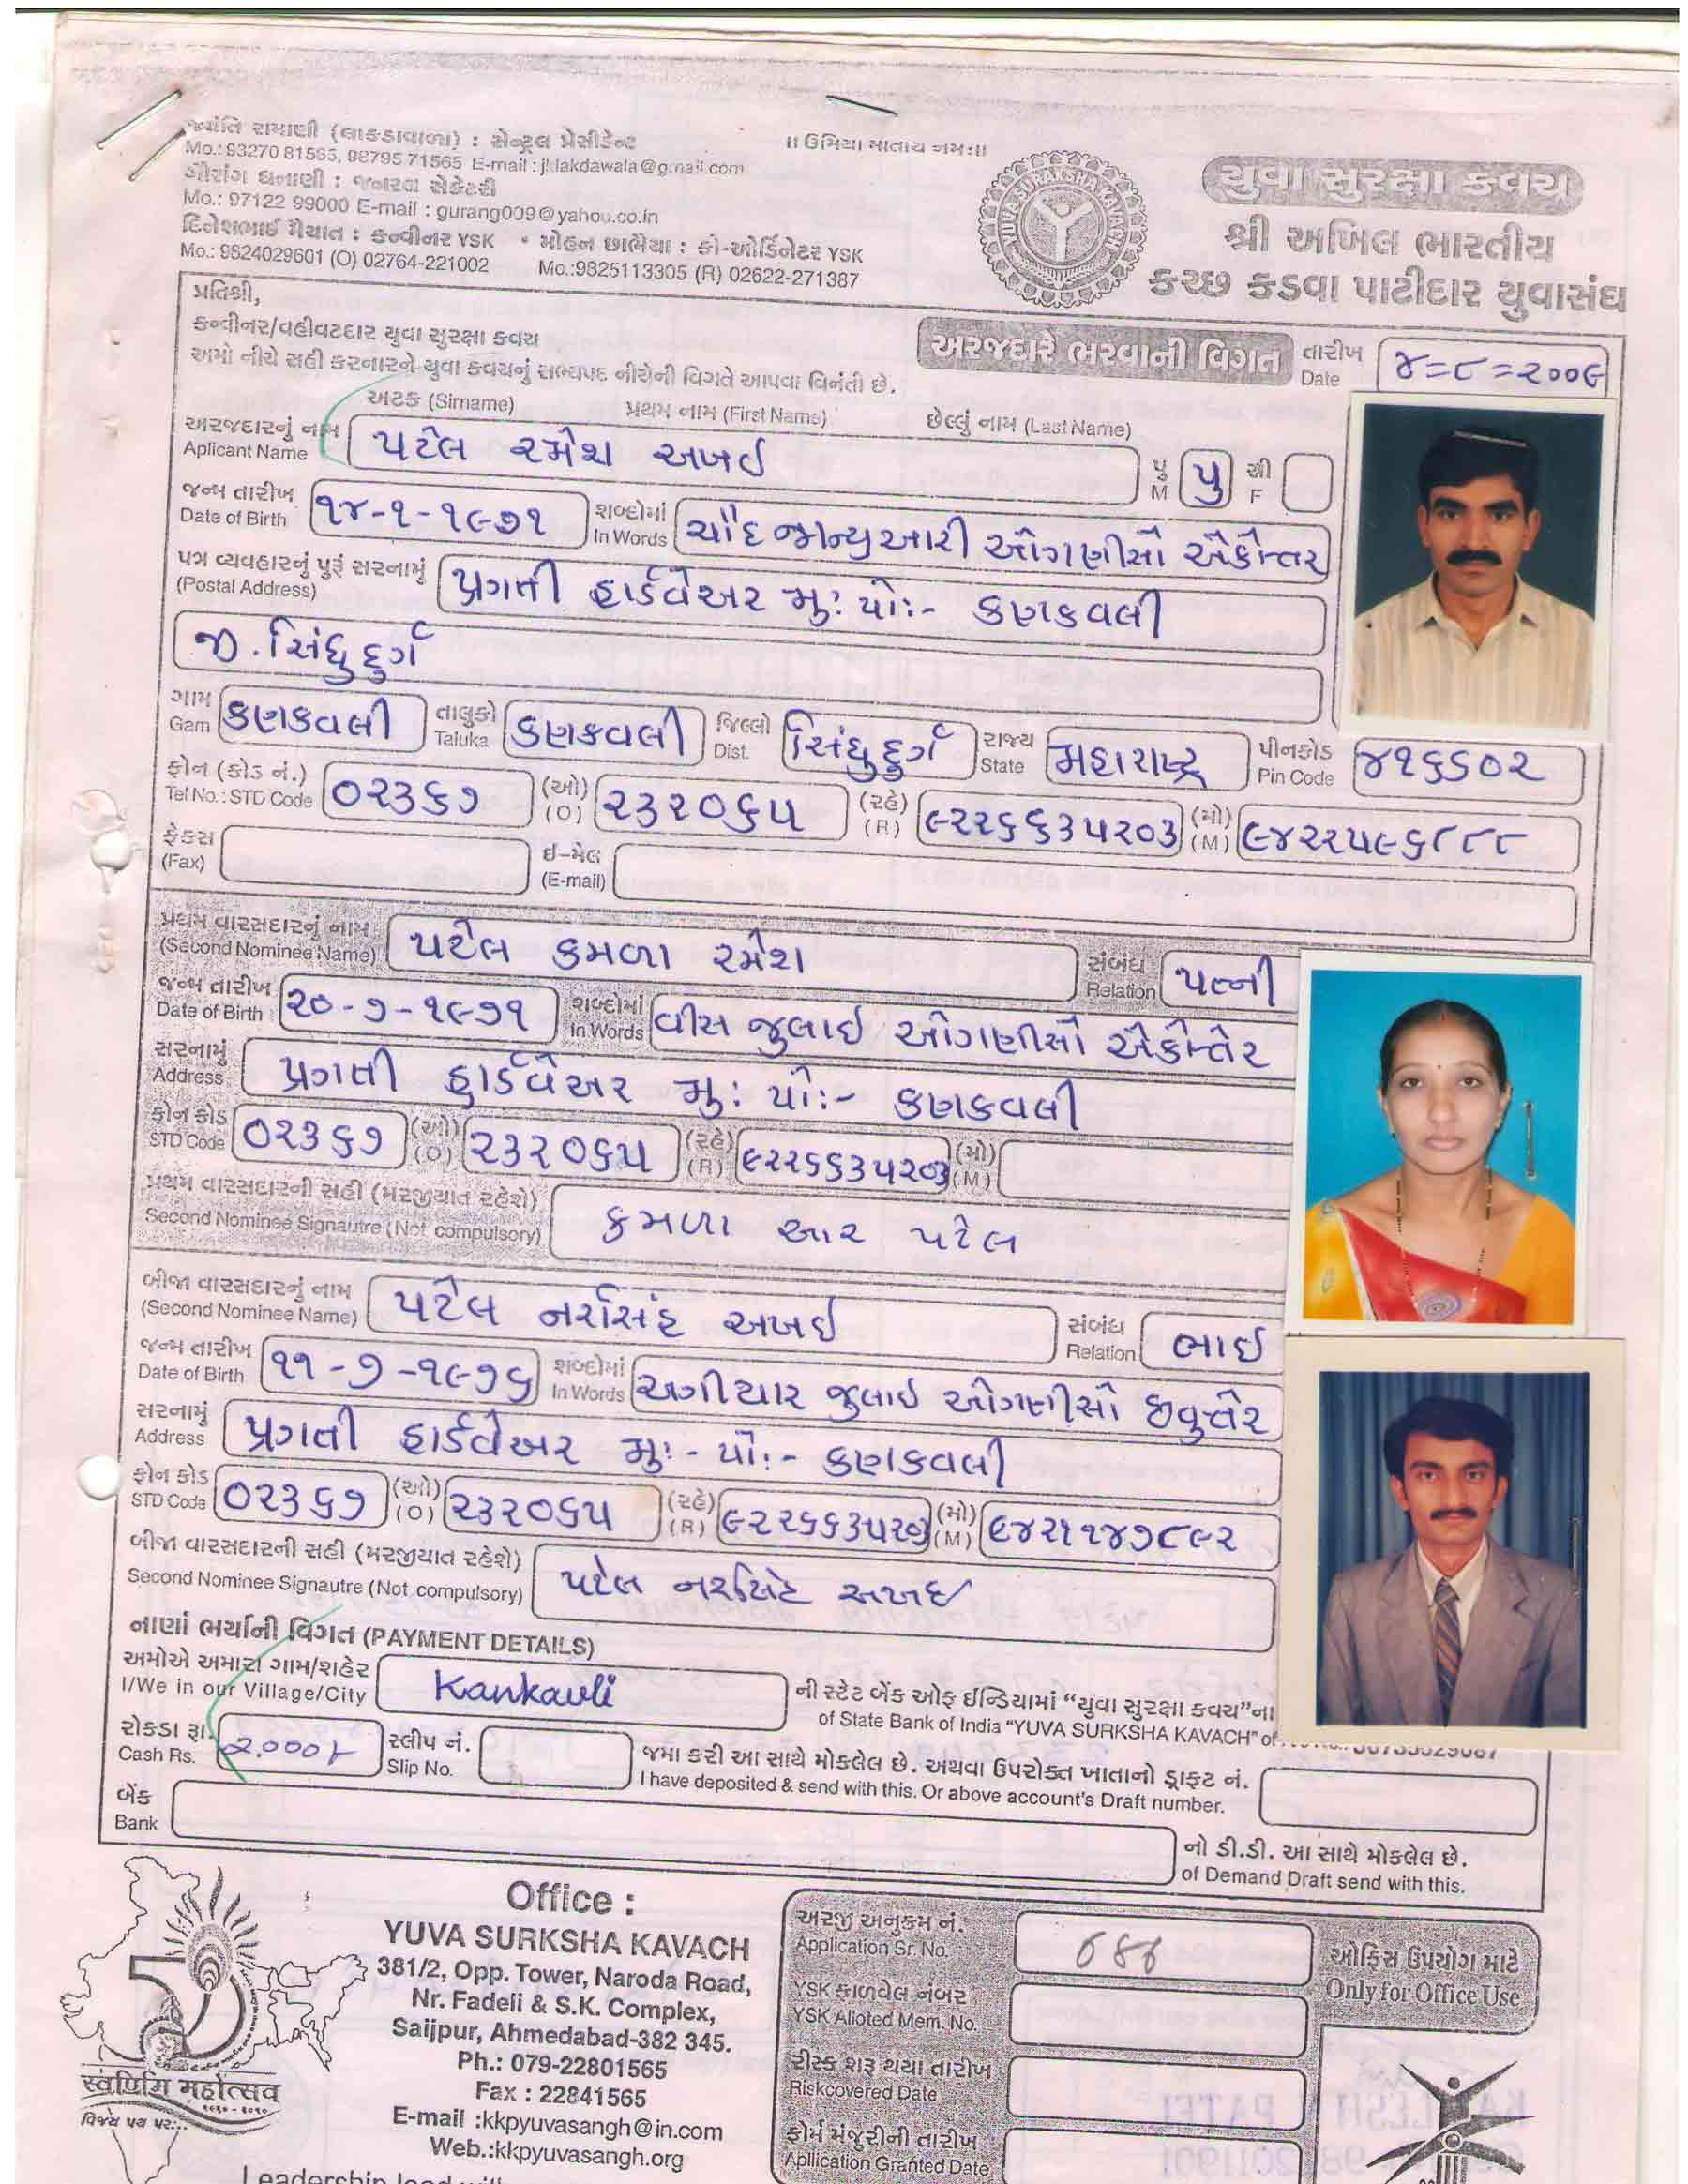 જયંતિ રામાણી (લાકડાવાળા) : સેન્ટ્રલ પ્રેસીડેન્ટ
Mo.: 93270 81565, 98795 71565 E-mail : jklakdawala@gmail.com
ગૌરાંગ ધનાણી : જનરલ સેક્રેટરી
Mo.: 97122 99000 E-mail : gurang009@yahoo.co.in
દિનેશભાઈ મૈયાત : કન્વીનર YSK • મોહન છાભૈયા : કો-ઓર્ડિનેટર YSK
Mo.: 9524029601 (O) 02764-221002 Mo.:9825113305 (R) 02622-271387
॥ ઉમિયા માતાય નમઃ॥
YUVA SURAKSHA KAVACH
યુવા સુરક્ષા કવચ
શ્રી અખિલ ભારતીય
કચ્છ કડવા પાટીદાર યુવાસંઘ
પ્રતિશ્રી,
કન્વીનર/વહીવટદાર યુવા સુરક્ષા કવચ
અમો નીચે સહી કરનારને યુવા કવચનું સભ્યપદ નીચેની વિગતે આપવા વિનંતી છે.
અરજદારે ભરવાની વિગત
તારીખ Date ૪=૮=૨૦૦૯
અટક (Sirname) પ્રથમ નામ (First Name) છેલ્લું નામ (Last Name)
અરજદારનું નામ Aplicant Name પટેલ રમેશ અખઈ પુ M પુ સ્ત્રી F
જન્મ તારીખ Date of Birth ૧૪-૧-૧૯૭૧ શબ્દોમાં In Words ચૌદ જાન્યુઆરી ઓગણીસો એકોત્તર
પત્ર વ્યવહારનું પુરૂં સરનામું (Postal Address) પ્રગતી હાર્ડવેઅર મુ: પો:- કણકવલી
જી. સિંધુદુર્ગ
ગામ Gam કણકવલી તાલુકો Taluka કણકવલી જિલ્લો Dist. સિંધુદુર્ગ રાજ્ય State મહારાષ્ટ્ર પીનકોડ Pin Code ૪૧૬૬૦૨
ફોન (કોડ નં.) Tel No.: STD Code ૦૨૩૬૭ (ઓ) (O) ૨૩૨૦૬૫ (રહે) (R) ૯૨૨૬૬૩૫૨૦૩ (મો) (M) ૯૪૨૨૫૯૬૮૮૮
ફેકસ (Fax) ઈ-મેલ (E-mail)
પ્રથમ વારસદારનું નામ (Second Nominee Name) પટેલ કમળા રમેશ સંબંધ Relation પત્ની
જન્મ તારીખ Date of Birth ૨૦-૭-૧૯૭૧ શબ્દોમાં In Words વીસ જુલાઈ ઓગણીસો એકોત્તેર
સરનામું Address પ્રગતી હાર્ડવેઅર મુ: પો:- કણકવલી
ફોન કોડ STD Code ૦૨૩૬૭ (ઓ) (O) ૨૩૨૦૬૫ (રહે) (R) ૯૨૨૬૬૩૫૨૦૩ (મો) (M)
પ્રથમ વારસદારની સહી (મરજીયાત રહેશે)
Second Nominee Signautre (Not compulsory) કમળા આર પટેલ
બીજા વારસદારનું નામ (Second Nominee Name) પટેલ નરસિંહ અખઈ સંબંધ Relation ભાઈ
જન્મ તારીખ Date of Birth ૧૧-૭-૧૯૭૬ શબ્દોમાં In Words અગીયાર જુલાઈ ઓગણીસો છવુત્તેર
સરનામું Address પ્રગતી હાર્ડવેઅર મુ:- પો:- કણકવલી
ફોન કોડ STD Code ૦૨૩૬૭ (ઓ) (O) ૨૩૨૦૬૫ (રહે) (R) ૯૨૨૬૬૩૫૨૦૩ (મો) (M) ૯૪૨૧૧૪૭૮૯૨
બીજા વારસદારની સહી (મરજીયાત રહેશે)
Second Nominee Signautre (Not compulsory) પટેલ નરસિંહ અખઈ
નાણાં ભર્યાની વિગત (PAYMENT DETAILS)
અમોએ અમારાં ગામ/શહેર I/We in our Village/City Kankavli ની સ્ટેટ બેંક ઓફ ઈન્ડિયામાં "યુવા સુરક્ષા કવચ"ના
of State Bank of India "YUVA SURKSHA KAVACH" of
રોકડા રૂા. Cash Rs. ૨૦૦૦/- સ્લીપ નં. Slip No. જમા કરી આ સાથે મોકલેલ છે. અથવા ઉપરોક્ત ખાતાનો ડ્રાફ્ટ નં.
I have deposited & send with this. Or above account's Draft number.
બેંક Bank નો ડી.ડી. આ સાથે મોકલેલ છે.
of Demand Draft send with this.
50
સ્વર્ણિમ મહોત્સવ
વિજય પથ પર...
Office :
YUVA SURKSHA KAVACH
381/2, Opp. Tower, Naroda Road,
Nr. Fadeli & S.K. Complex,
Saijpur, Ahmedabad-382 345.
Ph.: 079-22801565
Fax : 22841565
E-mail :kkpyuvasangh@in.com
Web.:kkpyuvasangh.org
અરજી અનુક્રમ નં. Application Sr. No. 686
ઓફિસ ઉપયોગ માટે Only for Office Use
YSK ફાળવેલ નંબર YSK Alloted Mem. No.
રીસ્ક શરૂ થયા તારીખ Riskcovered Date
ફોર્મ મંજુરીની તારીખ Apllication Granted Date